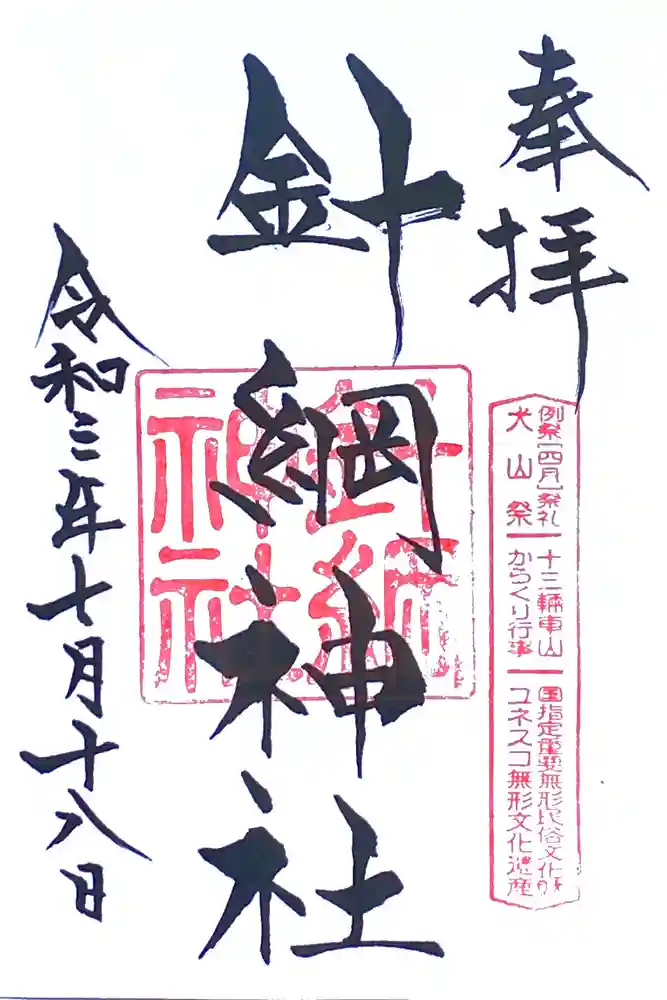 奉拝
例祭[四月]祭礼
犬山祭
十三輌車山
からくり行事
国指定重要無形民俗文化財
ユネスコ無形文化遺産
針綱神社
針綱
神社
令和三年七月十八日